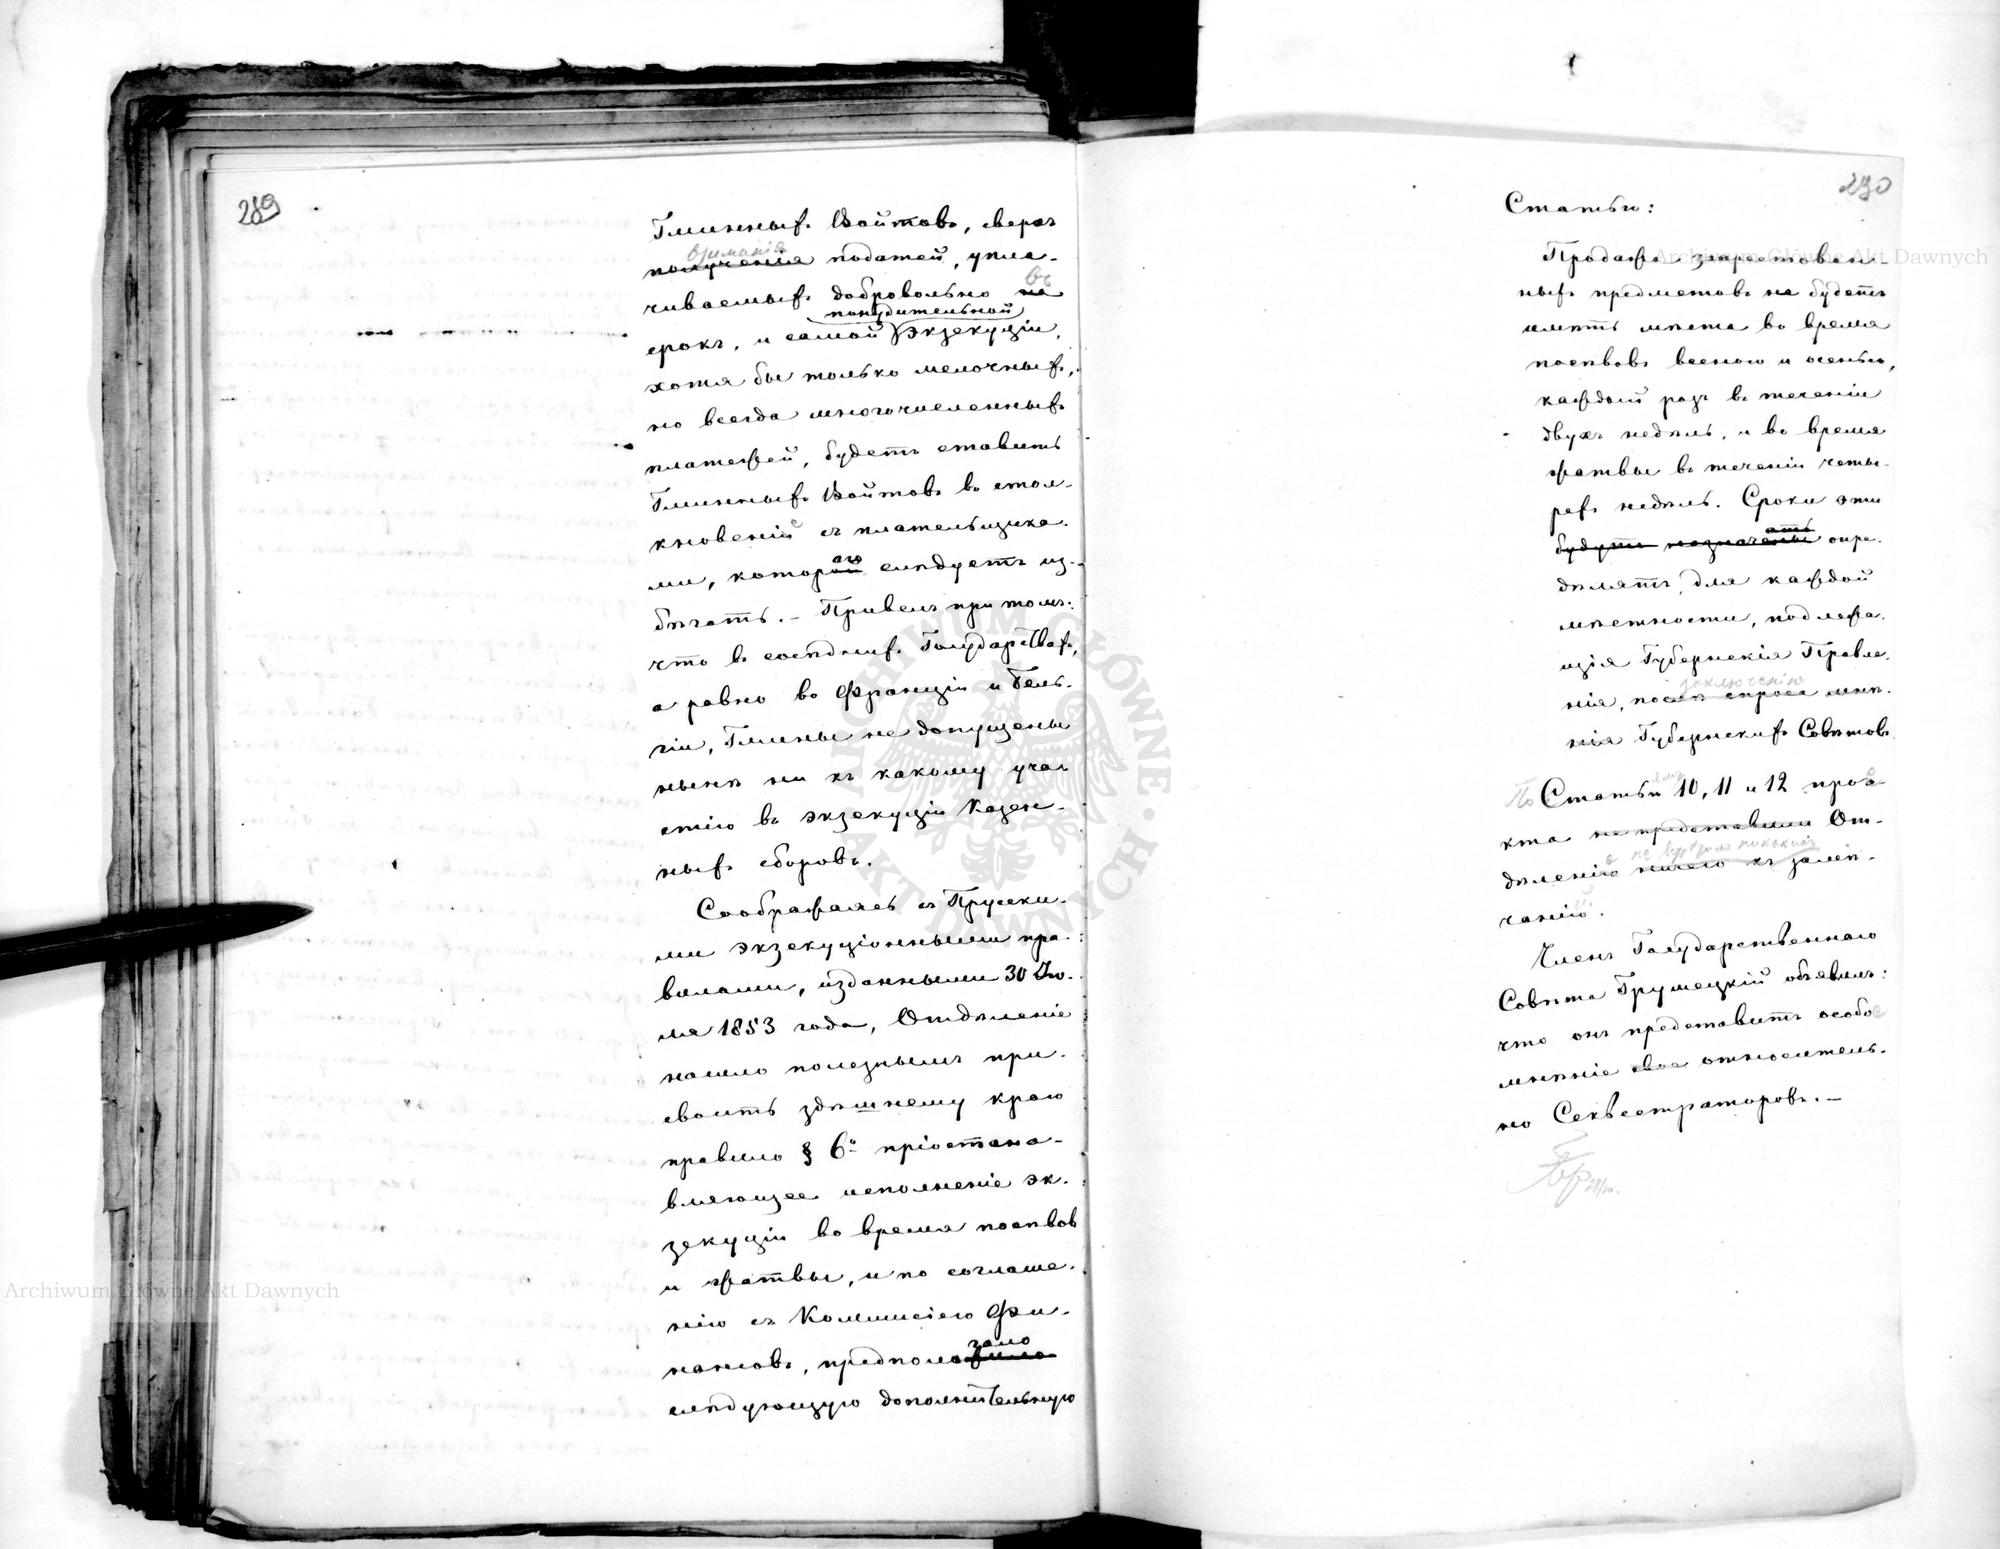 289
Гминныхъ Войтовъ, сверхъ
взиманія
полученія податей, упла-
чиваемыхъ добровольно не въ
понудительной
срокъ, и самой экзекуціи,
хотя бы только мелочныхъ,
но всегда многочисленныхъ
платежей, будетъ ставить
Гминныхъ Войтовъ въ стол-
кновенія съ плательщика-
ми, которой следуетъ из-
бѣгать. - Привелъ при томъ:
что въ сосѣднихъ Государствахъ,
а равно во Франціи и Бель-
гіи, Гмины не допущены
нынѣ ни къ какому учас-
тію въ экзекуціи Казен-
ныхъ сборовъ.
Соображаясь съ Прусски-
ми экзекуціонными пра-
вилами, изданными 30 Iю-
ля 1853 года, Отдѣленіе
нашло полезнымъ при-
своить здѣшнему краю
правило § 6º пріостана-
вляющее исполненіе эк-
зекуціи во время посѣвовъ
и жатвы, и по соглаше-
нію съ Коммисіею Фи-
нансовъ, предположило
слѣдующую дополнительную
290
Статью:
Продажа заарестован-
ныхъ предметовъ не будетъ
имѣть мѣста во время
посѣвовъ весною и осенью,
каждый разъ въ теченіи
двухъ недѣль, и во время
жатвы въ теченіи четы-
рехъ недѣль. Сроки эти
будутъ назначены опре-
дѣлятъ, для каждой
мѣстности, подлежа-
щія Губернскія Правле-
заключенію
нія, послѣ спроса мнѣ-
нія Губернскихъ Совѣтовъ
По Статьи 10, 11 и 12 проэ-
кта не представили От-
дѣленію ничего къ замѣ-
чанію.
Членъ Государственнаго
Совѣта Грушецкій объявилъ:
что онъ представитъ особое
мнѣніе свое относитель-
но Секвестраторовъ. -
Archiwum Główne Akt Dawnych
Archiwum Główne Akt Dawnych
ARCHIWUM GŁÓWNE AKT DAWNYCH